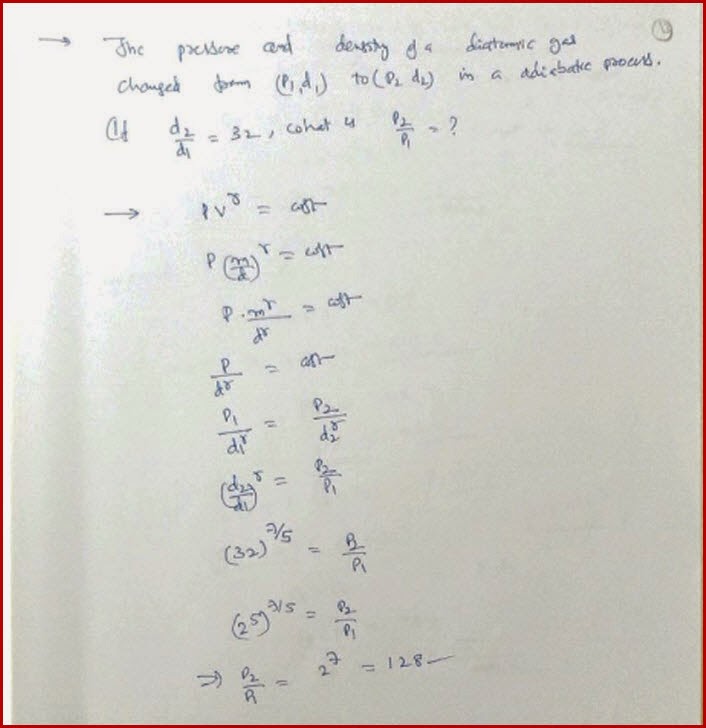 (19)
→ The pressure and density of a diatomic gas
changed from (P₁,d₁) to (P₂ d₂) in a adiabatic process.
If d₂/d₁ = 32, what is P₂/P₁ = ?
→ PV^γ = cost
P (m/d)^γ = cost
P · m^γ/d^γ = cost
P/d^γ = cost
P₁/d₁^γ = P₂/d₂^γ
(d₂/d₁)^γ = P₂/P₁
(32)^7/5 = P₂/P₁
(2^5)^7/5 = P₂/P₁
⇒ P₂/P₁ = 2^7 = 128